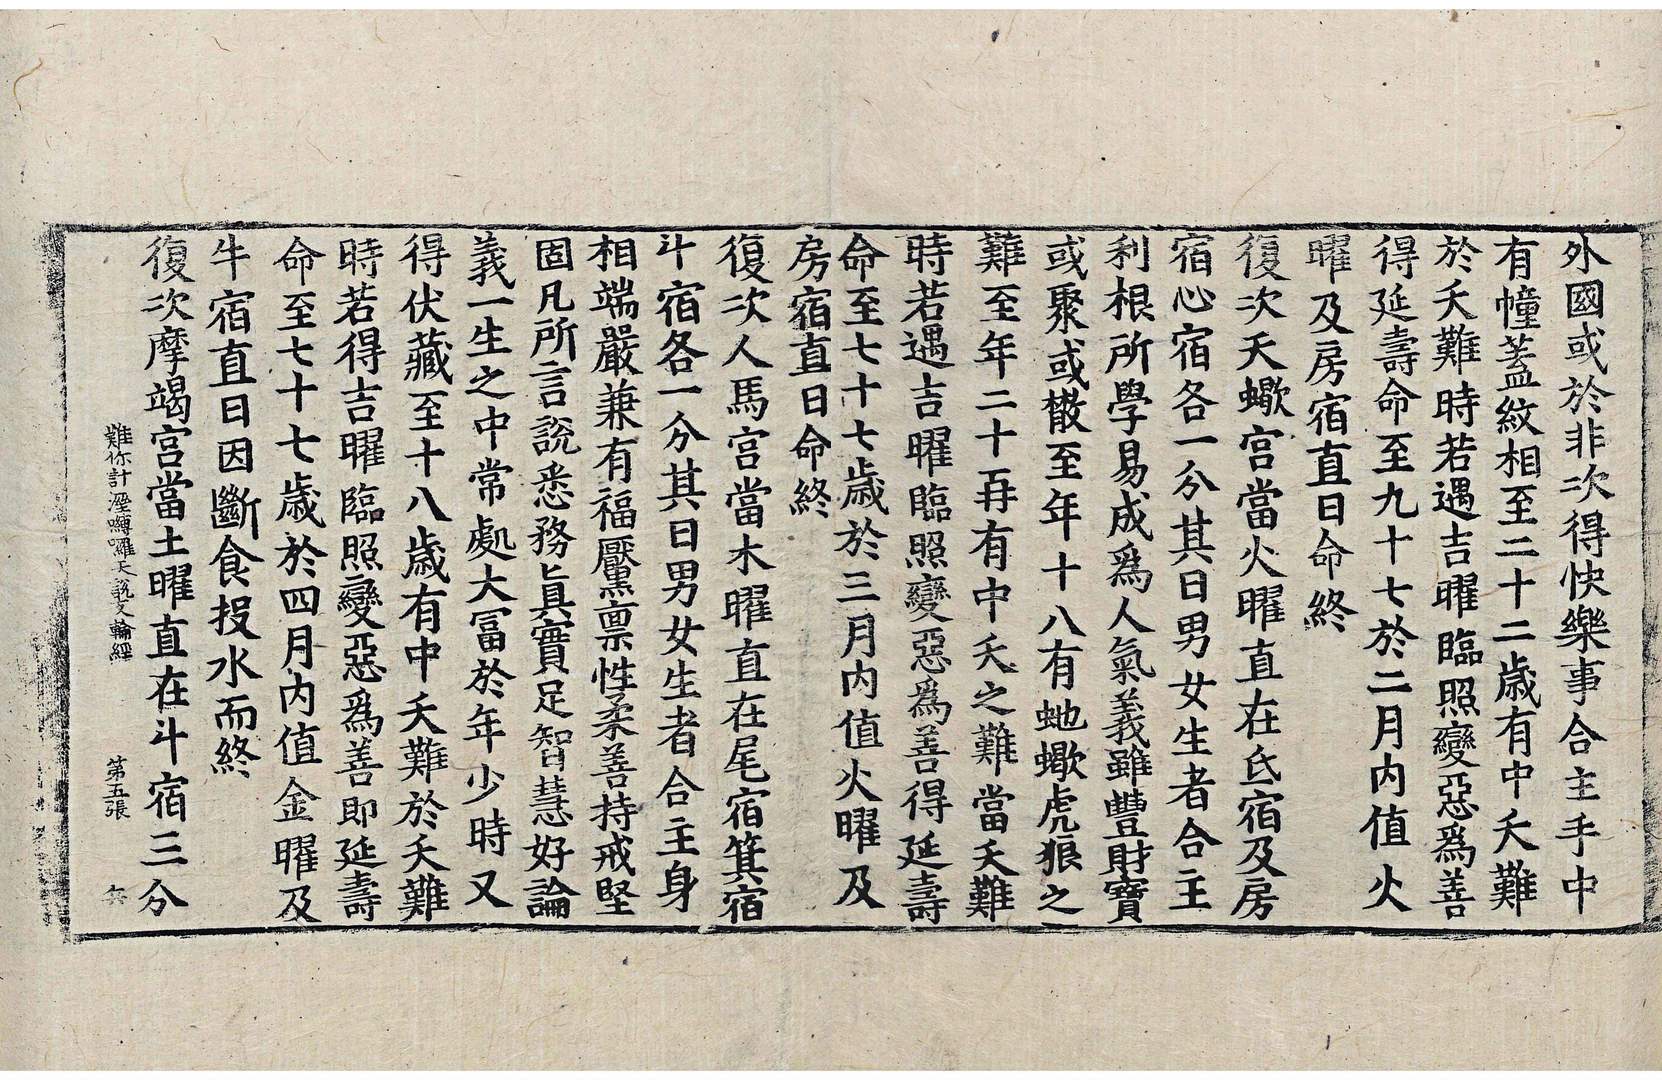 外國或於非次得快樂事合主手中
有幢蓋紋相至二十二歲有中夭難
於夭難時若遇吉曜臨照變惡爲善
得延壽命至九十七於二月内值火
曜及房宿直日命終
復次天蠍宮當火曜直在氐宿及房
宿心宿各一分其日男女生者合主
利根所學易成爲人氣義雖豐財寶
或聚或散至年十八有虵蠍虎狼之
難至年二十再有中夭之難當夭難
時若遇吉曜臨照變惡爲善得延壽
命至七十七歲於三月内值火曜及
房宿直日命終
復次人馬宮當木曜直在尾宿箕宿
斗宿各一分其日男女生者合主身
相端嚴兼有福壓禀性柔善持戒堅
固凡所言說悉務眞實足智慧好論
義一生之中常處大冨於年少時又
得伏藏至十八歲有中夭難於夭難
時若得吉曜臨照變惡爲善即延壽
命至七十七歲於四月内值金曜及
牛宿直日因斷食投水而終
復次摩竭宮當土曜直在斗宿三分
難你計溼嚩囉天說支輪經 第五張 六